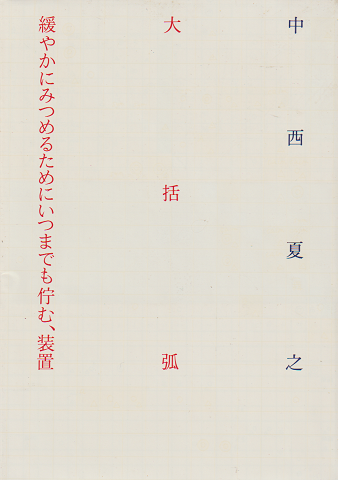 中西夏之
大括弧
緩やかにみつめるためにいつまでも佇む、装置